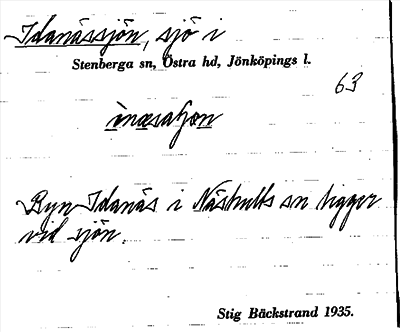 Idanässjön, sjö i
Stenberga sn, Östra hd, Jönköpings l.
63
Byn Idanäs i Näshults sn ligger
vid sjön.
Stig Bäckstrand 1935.